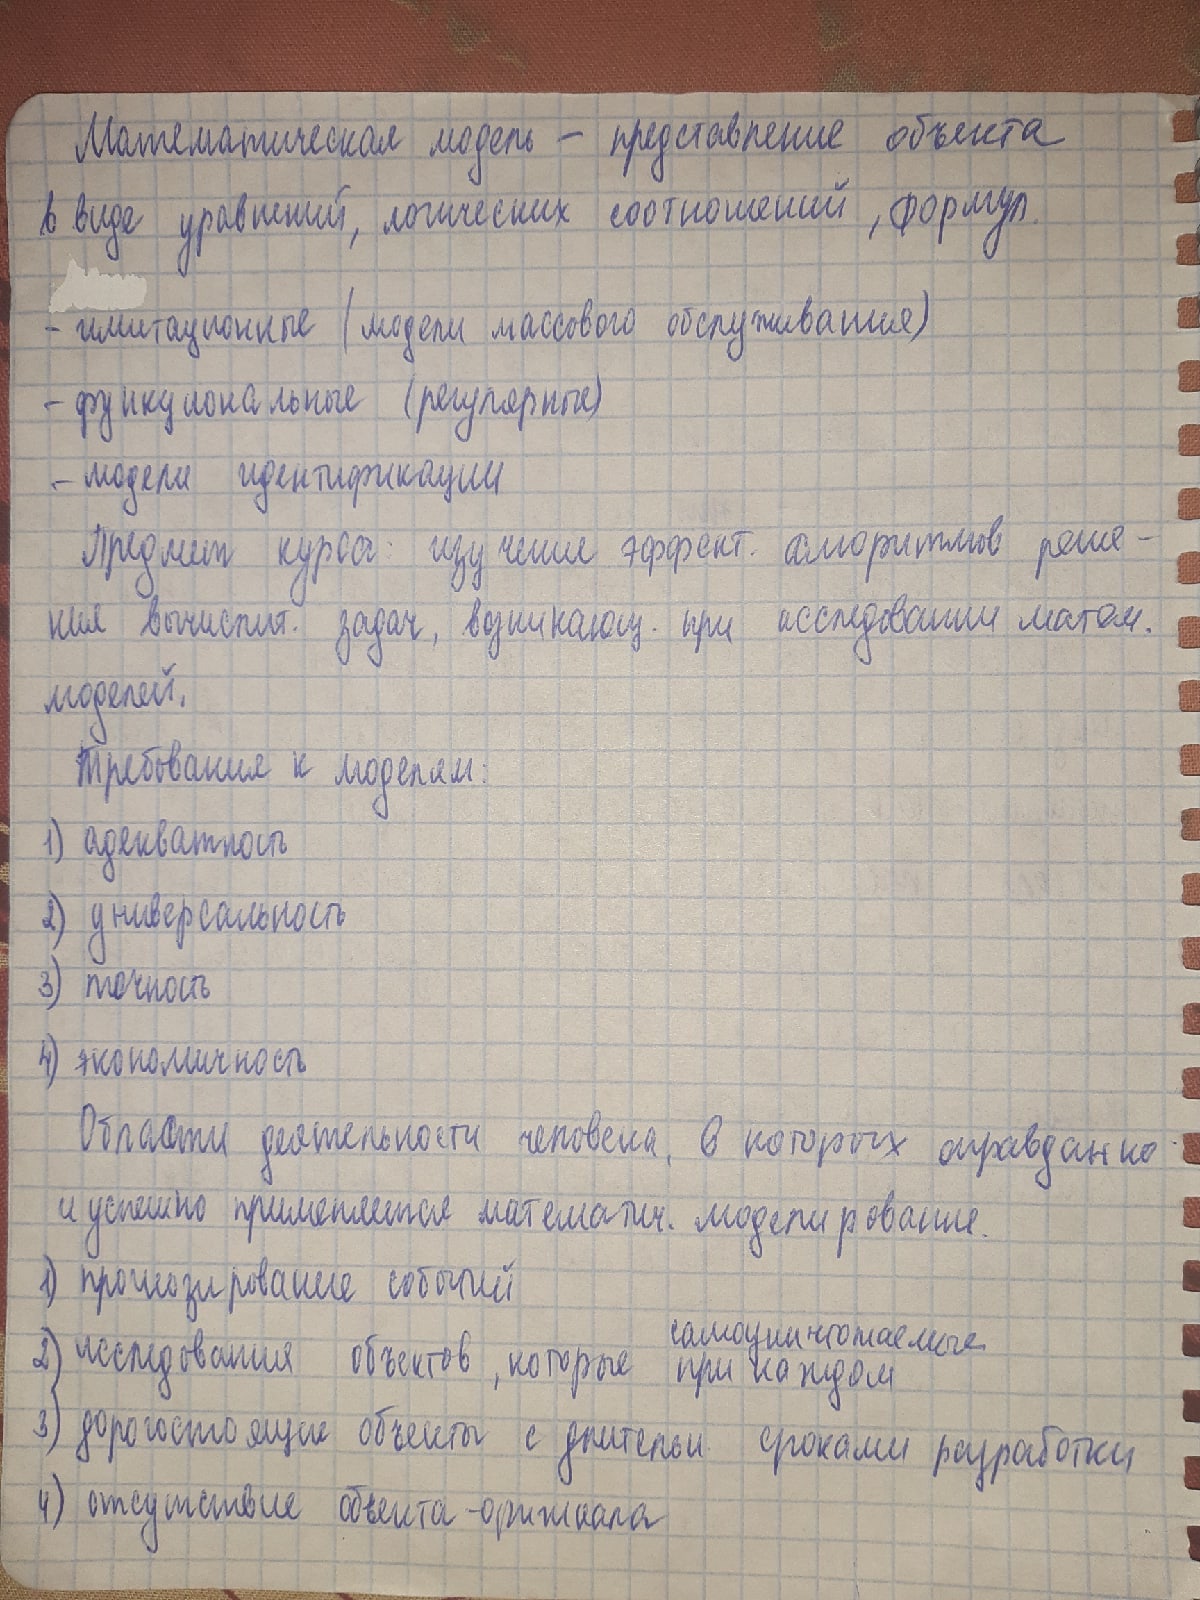 Математическая модель – представление объекта
в виде уравнений, логических соотношений, формул.
- имитационные (модели массового обслуживания)
- функциональные (регулярные)
- модели идентификации
Предмет курса: изучение эффект. алгоритмов реше-
ния вычислит. задач, возникающ. при исследовании матем.
моделей.
Требования к моделям:
1) адекватность
2) универсальность
3) точность
4) экономичность
Области деятельности человека, в которых оправданно
и успешно применяется математич. моделирование.
1) прогнозирование событий
самоуничтожаемые
2) исследования объектов, которые при каждом
3) дорогостоящие объекты с длительн сроками разработки
4) отсутствие объекта-оригинала